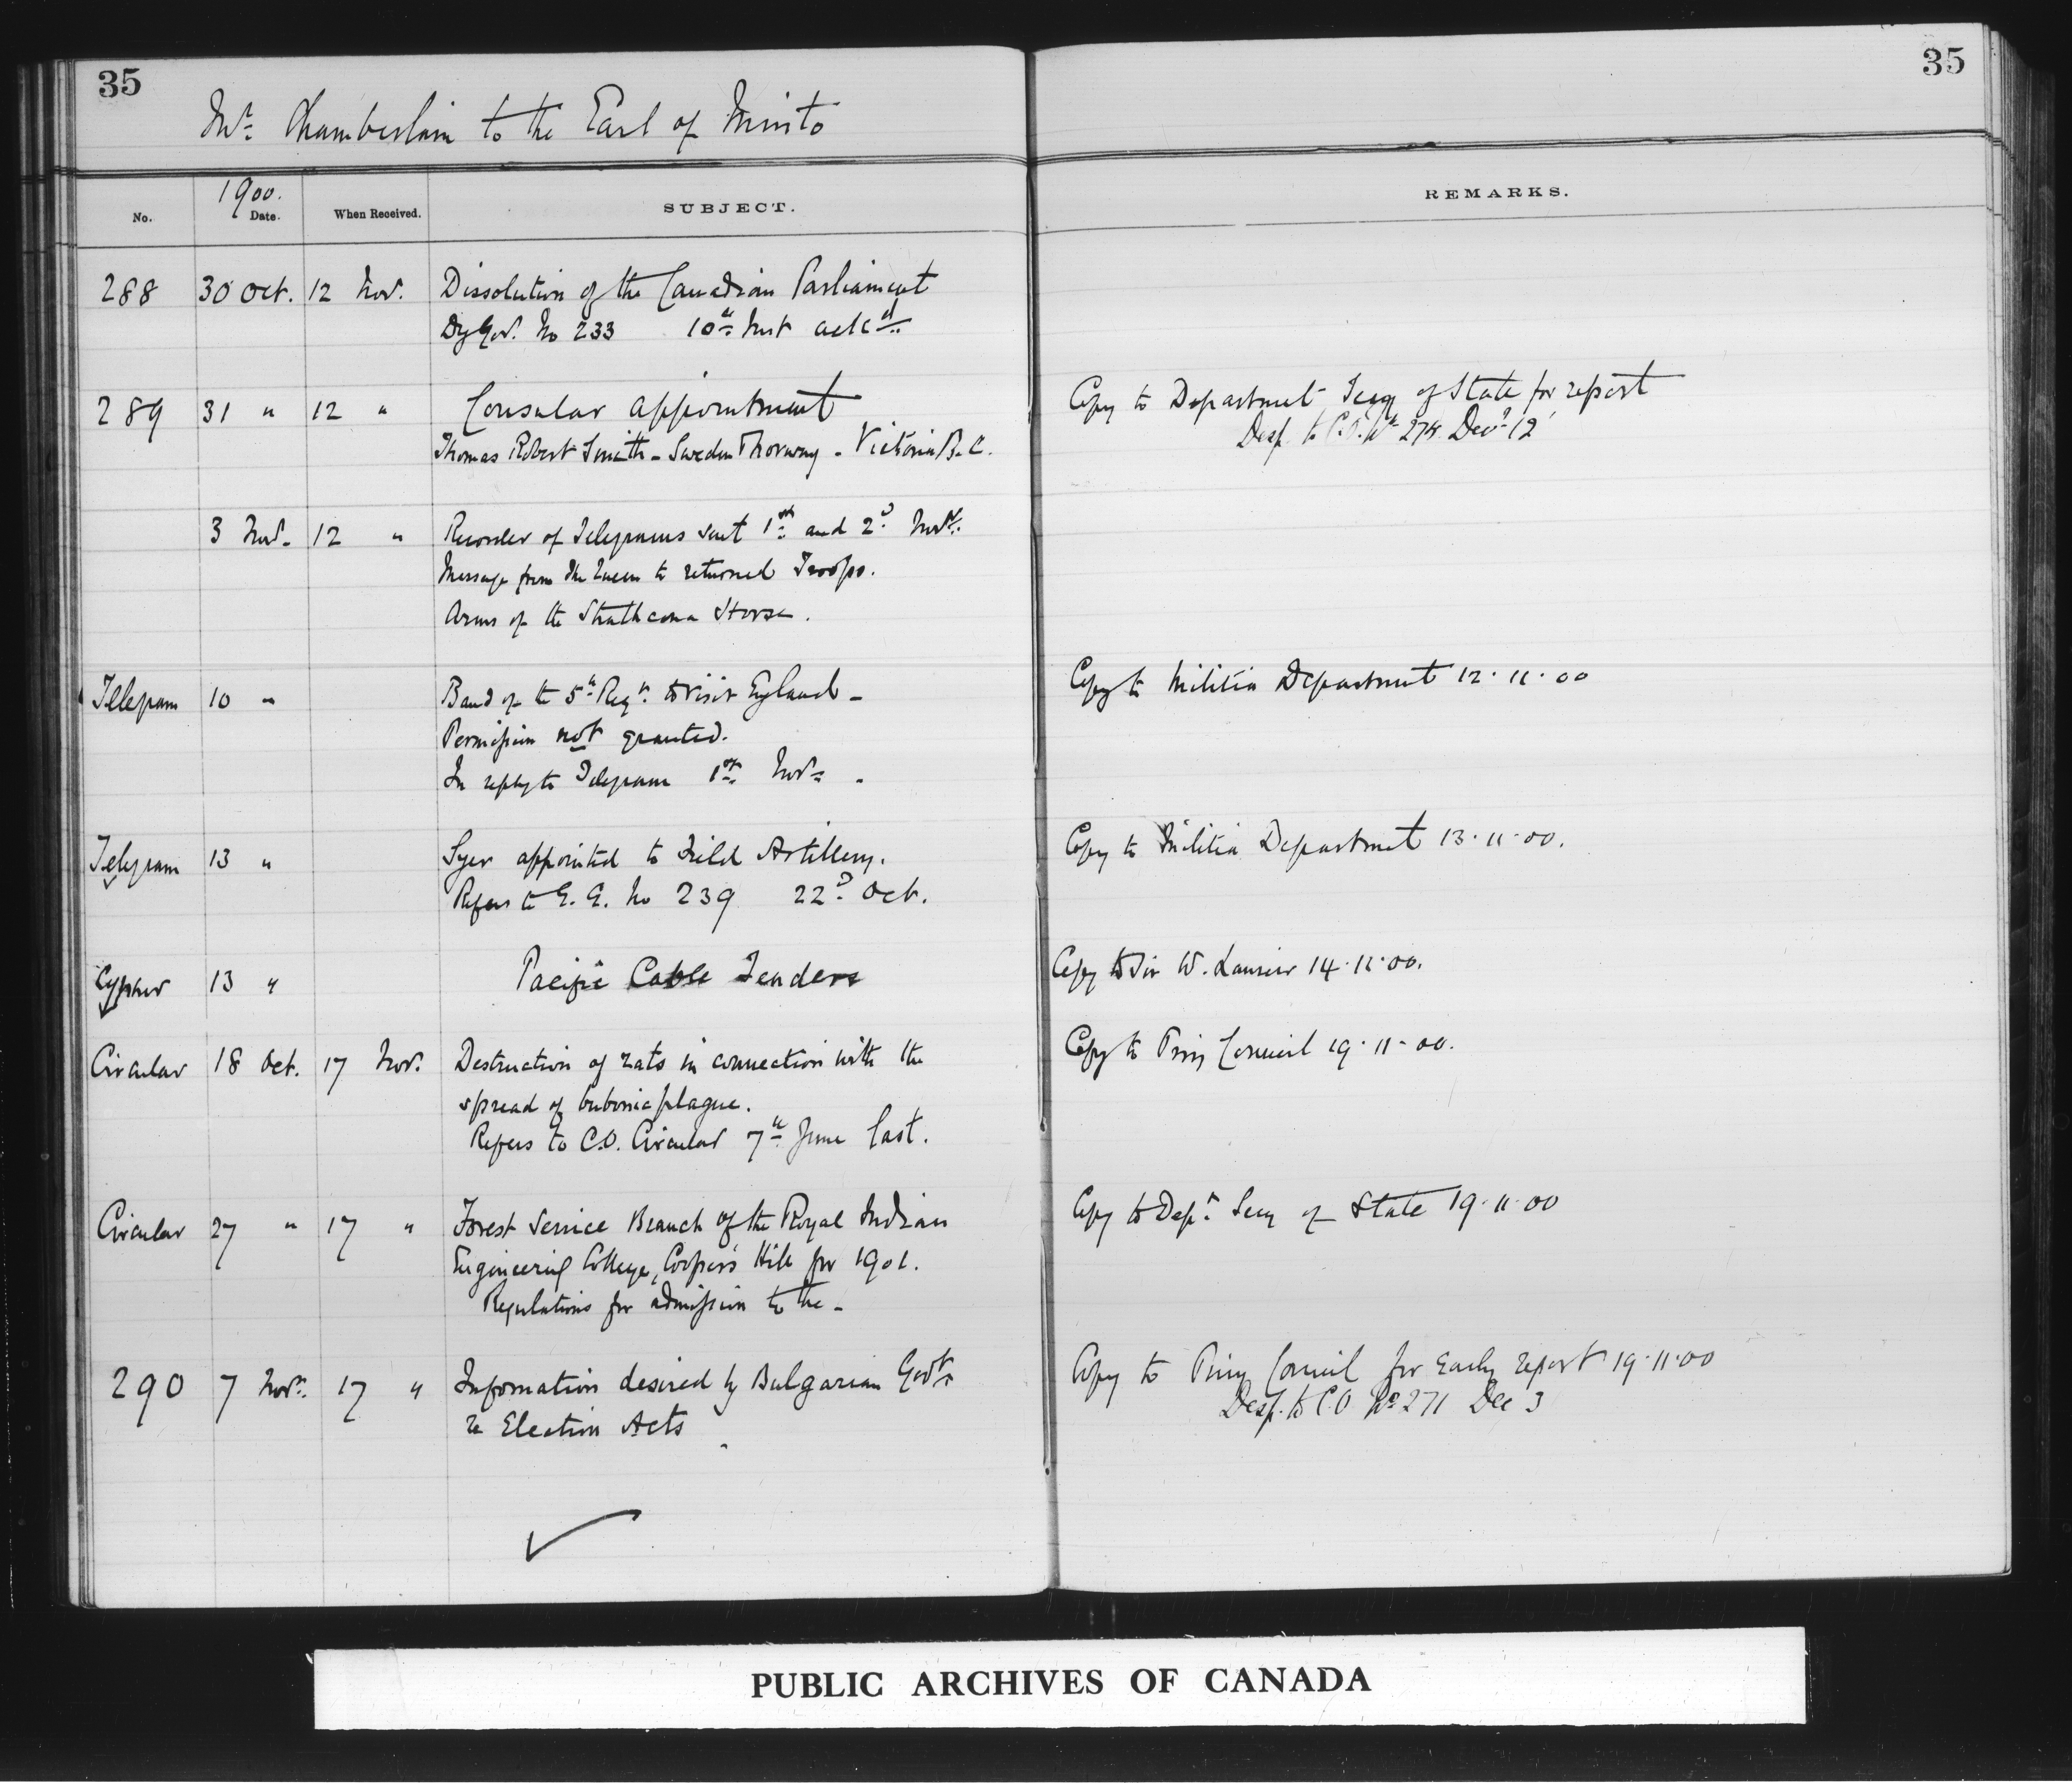 35
35
Mr. Chamberlain to the Earl of Minto
1900.
No. Date. When Received. SUBJECT. REMARKS.
288 30 Oct. 12 Nov. Dissolution of the Canadian Parliament
Dy Gov. No 233 10th Inst ackd.
289 31 " 12 " Consular appointment Copy to Department Secy of State for report
Thomas Robert Smith - Sweden & Norway - Victoria B.C. Desp. to C.O. No 274 Decr 12
3 Nov. 12 " Recorder of Telegrams sent 1st and 2d Novr.
Message from the Queen to returned Troops.
Arms of the Strathcona Horse.
Telegram 10 " Band of the 5th Regt. to visit England - Copy to Militia Department 12.11.00
Permission not granted.
In reply to Telegram 1st Novr.
Telegram 13 " Syer appointed to Field Artillery. Copy to Militia Department 13.11.00.
Refers to G.G. No 239 22d Oct.
Cypher 13 " Pacific Cable Tenders Copy to Sir W. Laurier 14.11.00.
Circular 18 Oct. 17 Nov. Destruction of rats in connection with the Copy to Privy Council 19.11.00.
spread of bubonic plague.
Refers to C.O. Circular 7th June last.
Circular 27 " 17 " Forest Service Branch of the Royal Indian Copy to Dept. Secy of State 19.11.00
Engineering College, Cooper's Hill for 1901.
Regulations for admission to the -
290 7 Novr. 17 " Information desired by Bulgarian Govt. Copy to Privy Council for early report 19.11.00
re Election Acts Desp. to C.O No 271 Dec 3
PUBLIC ARCHIVES OF CANADA